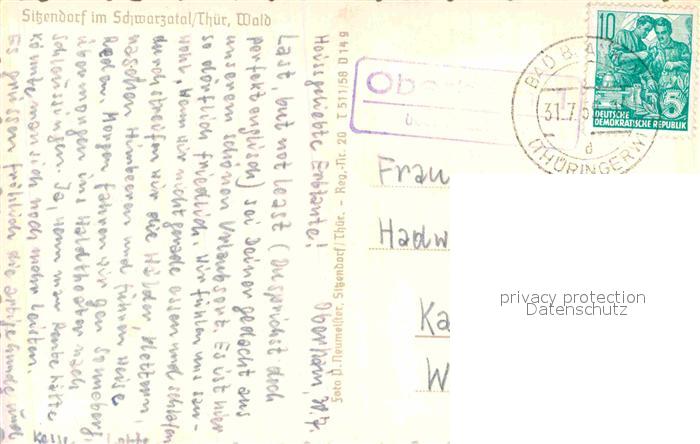 Sitzendorf im Schwarzatal/Thür. Wald
Heissgeliebte Erbtante!
Oberhain, 30.7.
Last, but not least (Du sprichst doch
perfekt englisch) sei Deiner gedacht aus
unserem schönen Urlaubsort. Es ist hier
so dörflich friedlich. Wir fühlen uns sau-
wohl. Wenn wir nicht gerade essen und schlafen
durchstreifen wir die Wälder, klettern,
naschen Himbeeren und
baden. Morgen fahren wir gen Sonneberg,
übermorgen ins Waldtheater nach
Schleusingen. Ja, wenn man Rente hätte
könnte man sich noch mehr leisten.
Es grüssen fröhlich die
Foto P. Neumeister, Sitzendorf/Thür. – Reg.-Nr. 20 T 511/58 D 14 9
Ob
10
5
DEUTSCHE
DEMOKRATISCHE REPUBLIK
BAD B
31.7.5
d
(THÜRINGERW)
Frau
Hadw
Ka
W
privacy protection
Datenschutz